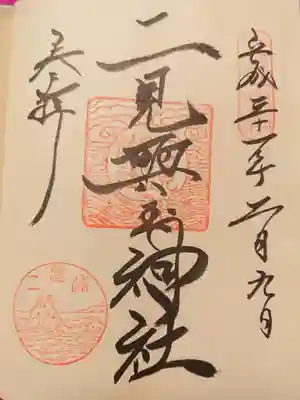 平成三十一年二月九日
二見興玉神社
奉拝